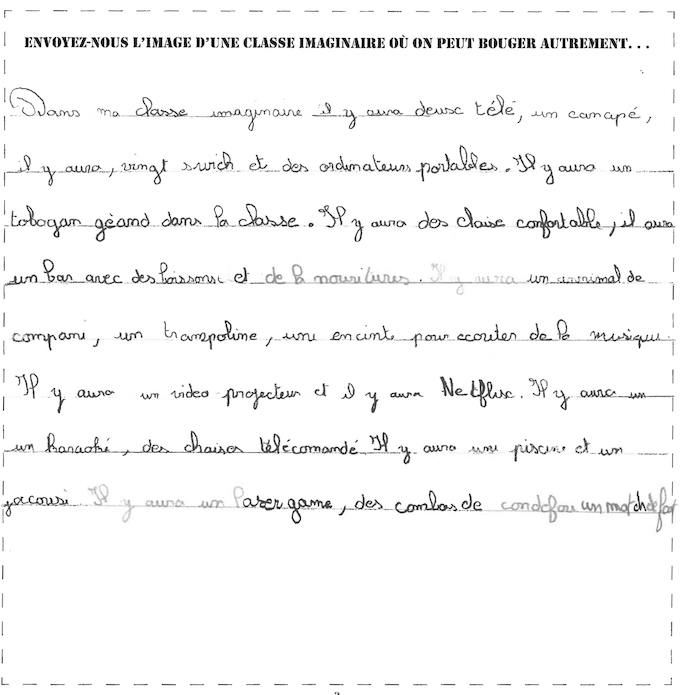 ENVOYEZ-NOUS L'IMAGE D'UNE CLASSE IMAGINAIRE OÙ ON PEUT BOUGER AUTREMENT...
Dans ma classe imaginaire il y aura deux télé, un canapé,
il y aura, vingt swich et des ordinateurs portables. Il y aura un
tobogan géand dans la classe. Il y aura des claise confortable, il aura
un bar avec des boissons et de la nouritures. Il y aura un annimal de
compani, un trampoline, une encinte pour ecouter de la musique.
Il y aura un video projecteur et il y aura Netflix. Il y aura un
un karaoké, des chaises télécomandé Il y aura une piscine et un
jacousi Il y aura un lazer game, des combas de un match de